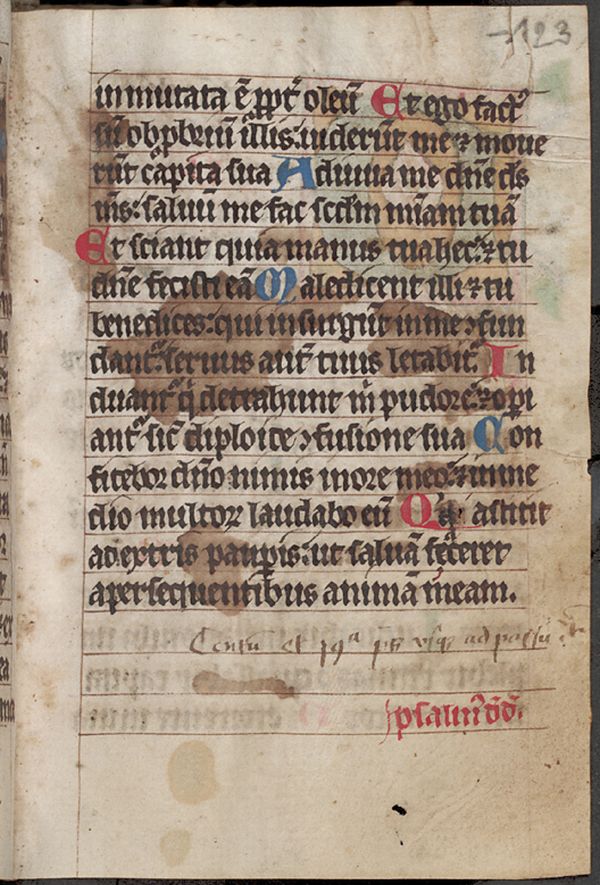 123
inmutata ē ꝓpt̄ oleū Et ego fact᷒
sū obꝓbriū illis: uiderūt me ⁊ moue
rūt capita sua Adiuua me dn̄e ds̄
m̄s: saluū me fac scd̄m mīam tuā
Et sciant quia manus tua hec: ⁊ tu
dn̄e fecisti eā Maledicent illi ⁊ tu
benedices: qui insurgūt in me ꝯfun
dant᷑: seruus aut̄ tuus letabit᷑ In
duant᷑ q̇ detrahunt m̄ pudore: ⁊ opi
ant᷑ sic̄ diploide ꝯfusione sua Con
fitebor dn̄o nimis in ore meo: ⁊ in me
dio multoꝝ laudabo eū Qⁱa astitit
a dextris paup̄is: ut saluā faceret
a persequentibus animā meam.
Centū et
psalm᷒ dd̄.